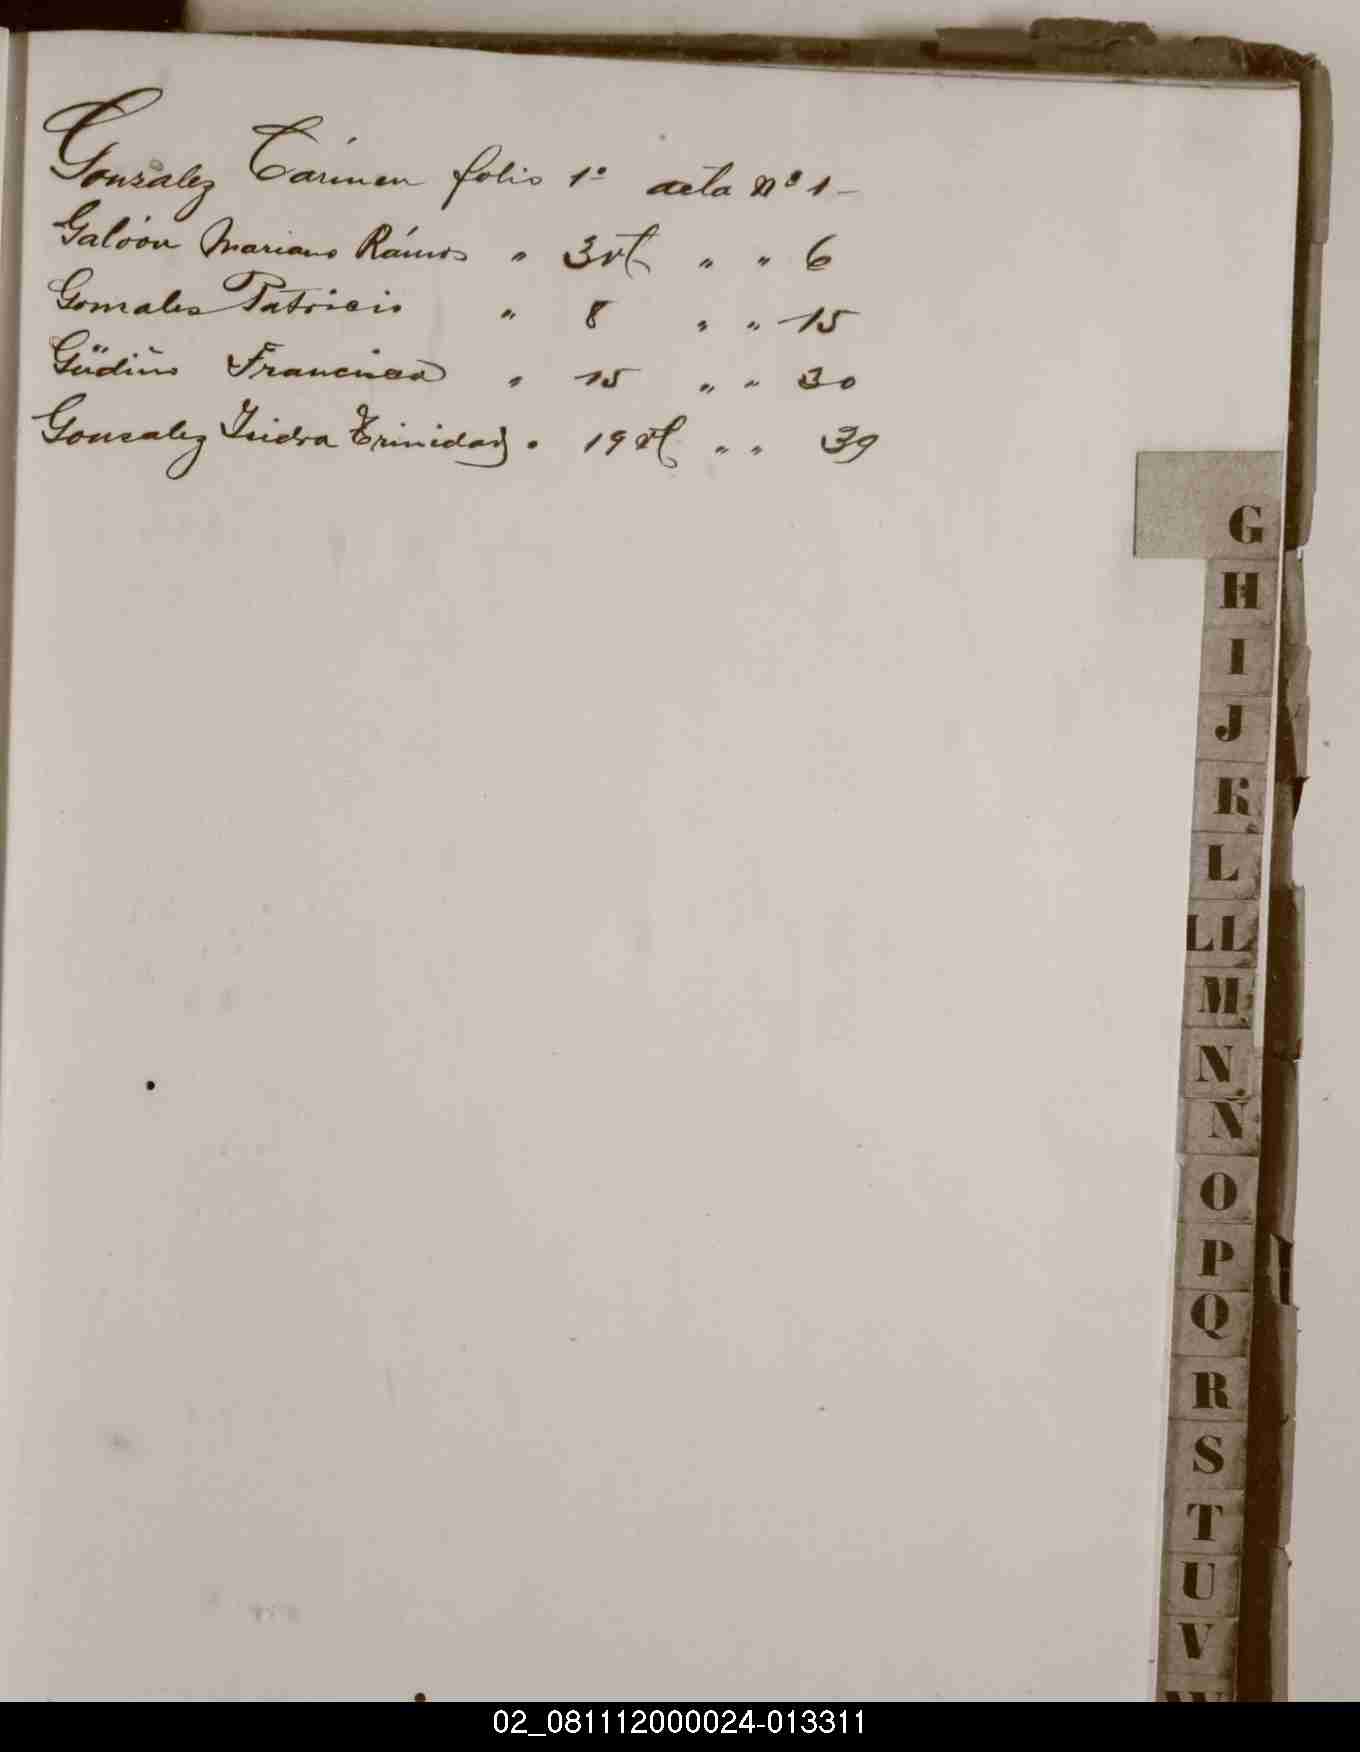 Gonzalez Cármen folio 1º acta nº 1-
Galván Mariano Rámos " 3 vt " " 6
Gonzales Patricio " 8 " " 15
Güdiño Francisca " 15 " " 30
Gonzalez Isidra Trinidad " 19 vt " " 39
G
H
I
J
K
L
LL
M
N
Ñ
O
P
Q
R
S
T
U
V
W
02_081112000024-013311